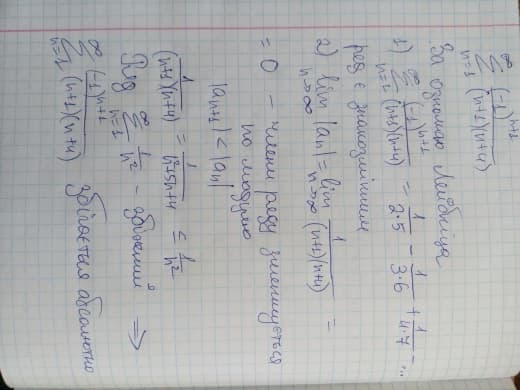 ∞
∑ (-1)^{n+1} / (n+1)(n+4)
n=1
За ознакою Лейбніца
1) ∑_{n=1}^{∞} (-1)^{n+1} / (n+1)(n+4) = 1/2·5 - 1/3·6 + 1/4·7 - ...
ряд є знакозмінним
2) lim_{n→∞} |a_n| = lim_{n→∞} 1/(n+1)(n+4) =
= 0 – члени ряду зменшується
по модулю
|a_{n+1}| < |a_n|
1/(n+1)(n+4) = 1/n²+5n+4 ≤ 1/n²
Ряд ∑_{n=1}^{∞} 1/n² - збіжний ⟹
∑_{n=1}^{∞} (-1)^{n+1} / (n+1)(n+4) збігається абсолютно